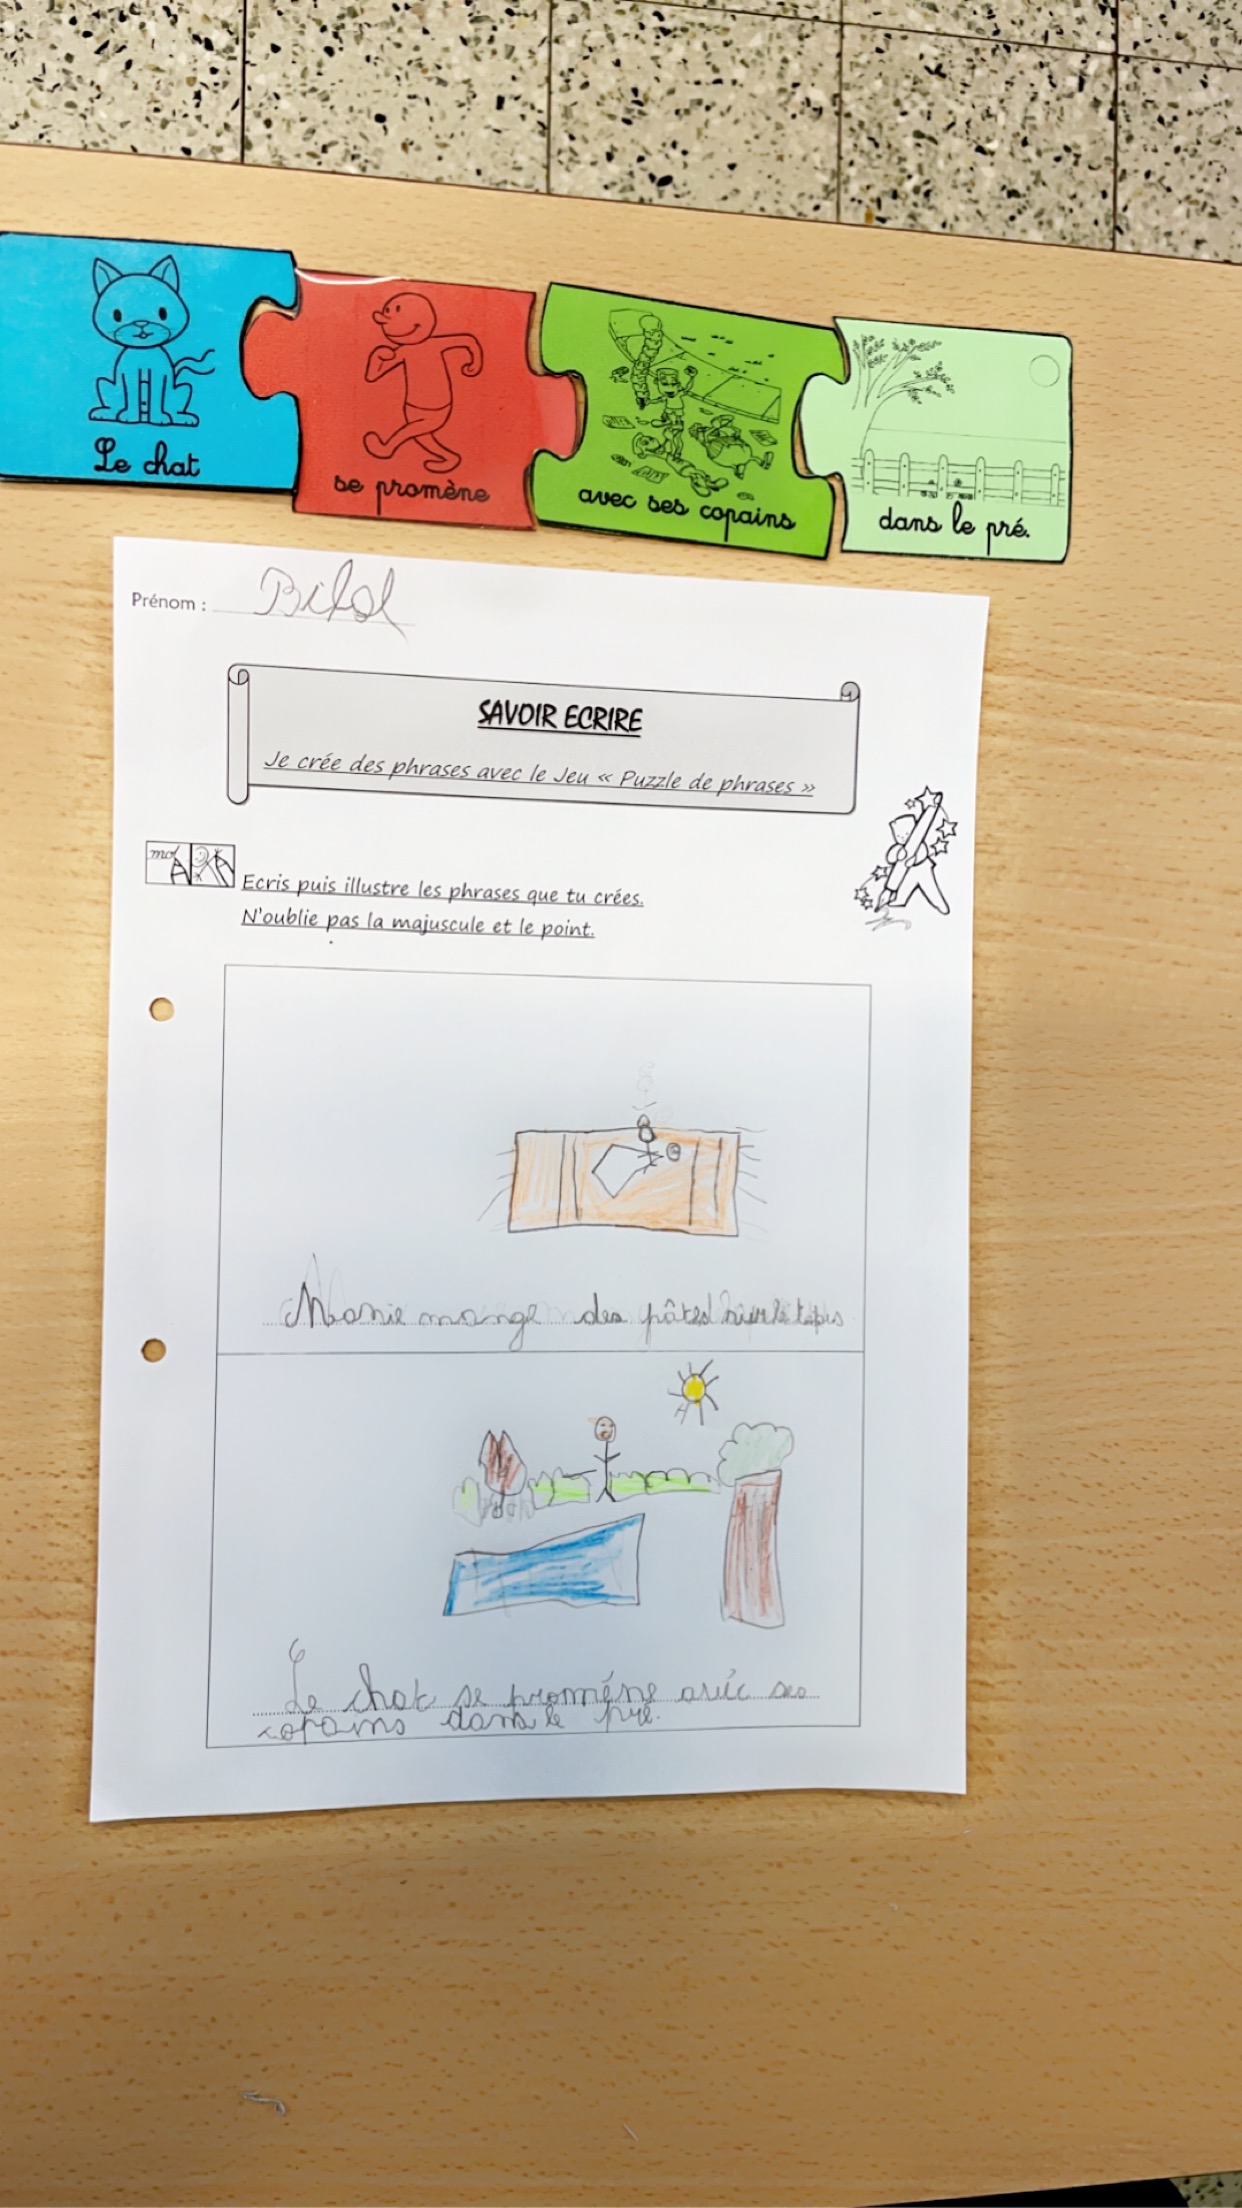 Le chat
se promène
avec ses copains
dans le pré.
Prénom : Bilal
SAVOIR ECRIRE
Je crée des phrases avec le Jeu « Puzzle de phrases »
mot
Ecris puis illustre les phrases que tu crées.
N'oublie pas la majuscule et le point.
mange des pâtes sur le tapis
Le chat se promène avec ses
copains dans le pré.